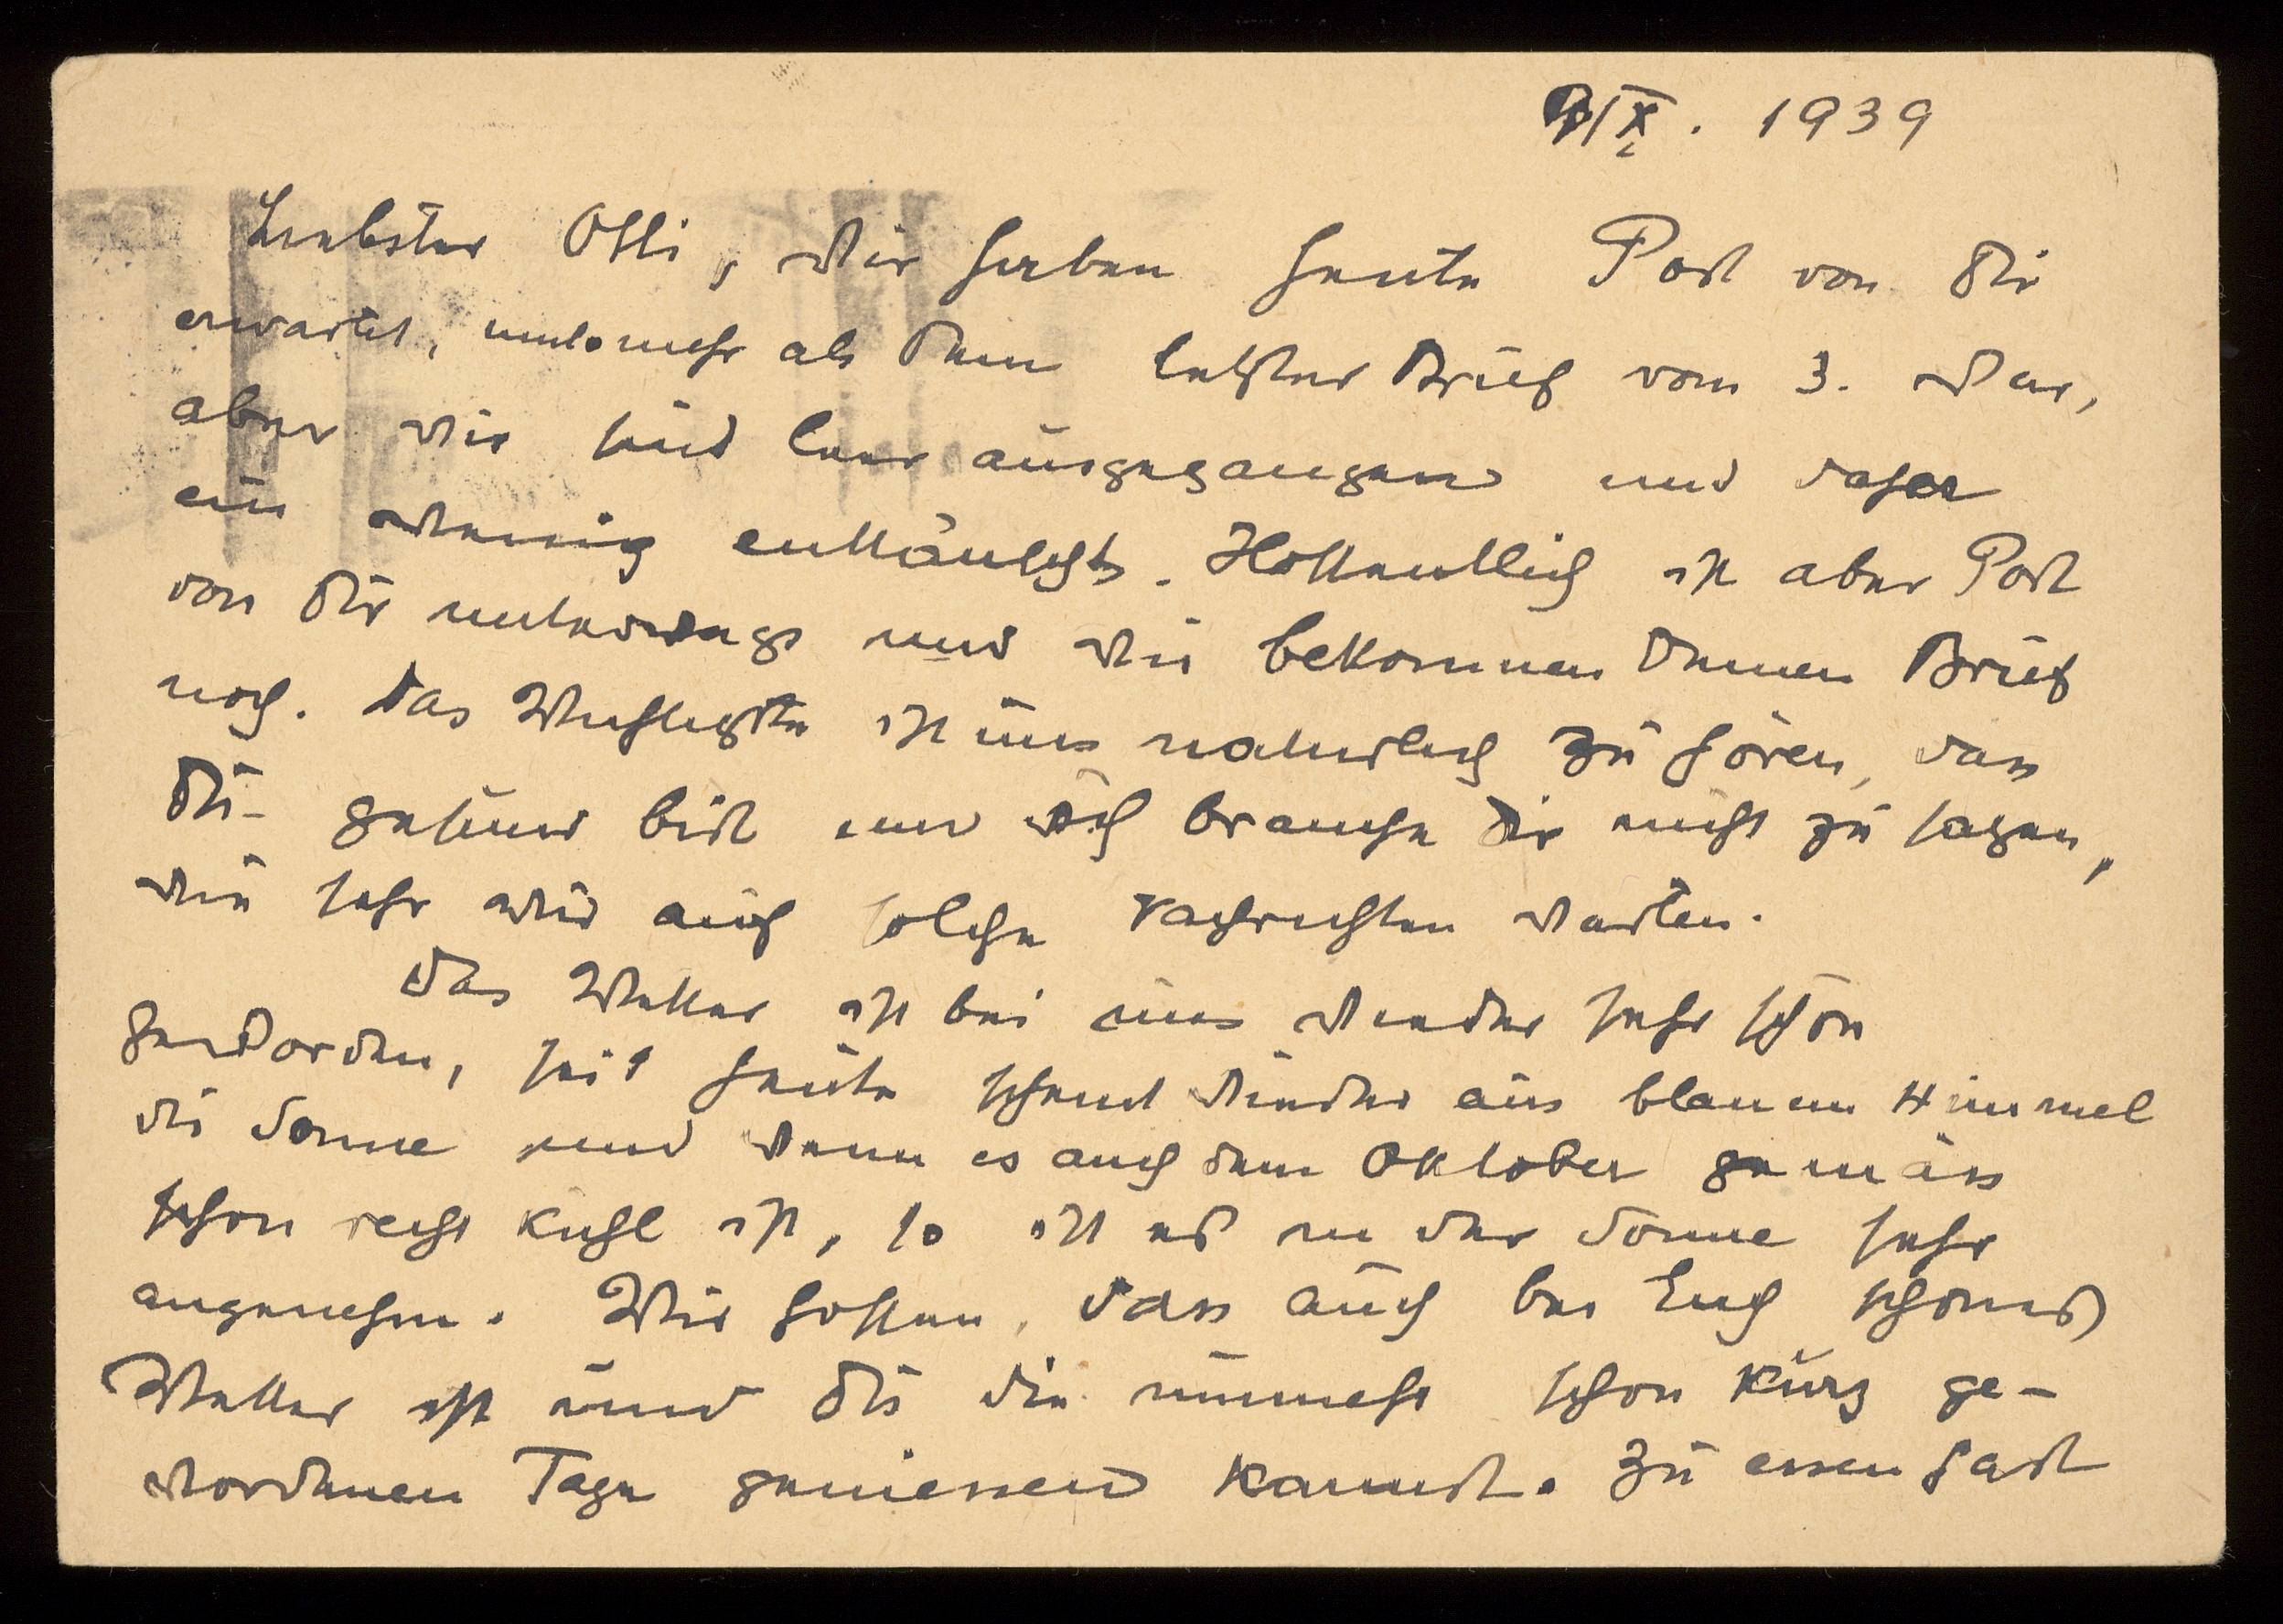 9/X. 1939
Liebster Otti, wir haben heute Post von Dir
erwartet, umsomehr als Dein letzter Brief vom 3. war,
aber wir sind leer ausgegangen und daher
ein wenig enttäuscht. Hoffentlich ist aber Post
von Dir unterwegs und wir bekommen Deinen Brief
noch. Das Wichtigste ist uns natürlich zu hören, dass
Du gesund bist und ich brauche Dir nicht zu sagen,
wie sehr wir auf solche Nachrichten warten.
Das Wetter ist bei uns wieder sehr schön
geworden, seit heute scheint wieder aus blauem Himmel
die Sonne und wenn es auch dem Oktober gemäss
schon recht kühl ist, so ist es in der Sonne sehr
angenehm. Wir hoffen, dass auch bei Euch schönes
Wetter ist und Du die nunmehr schon kurz ge-
wordenen Tage geniessen kannst. Zu essen hast